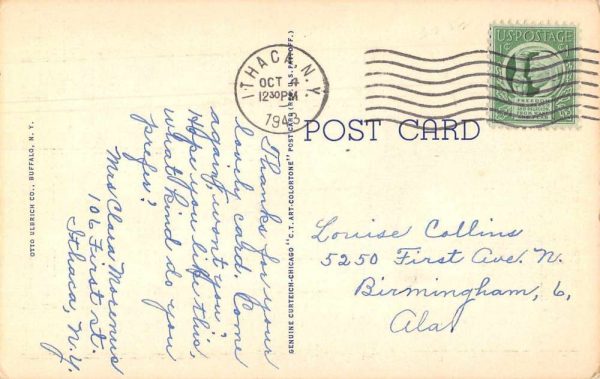 U.S. POSTAGE
ITHACA, N.Y.
OCT 4
12 30 PM
1943
POST CARD
Thanks for your
lovely card. Come
again, won't you?
Hope you like this,
what kind do you
prefer?
Mrs Clara
106 First st.
Ithaca, N.Y.
Louise Collins
5250 First Ave. N.
Birmingham, 6,
Ala.
OTTO ULBRICH CO., BUFFALO, N. Y.
GENUINE CURTEICH-CHICAGO "C.T. ART-COLORTONE" POST CARD (REG. U.S. PAT. OFF.)